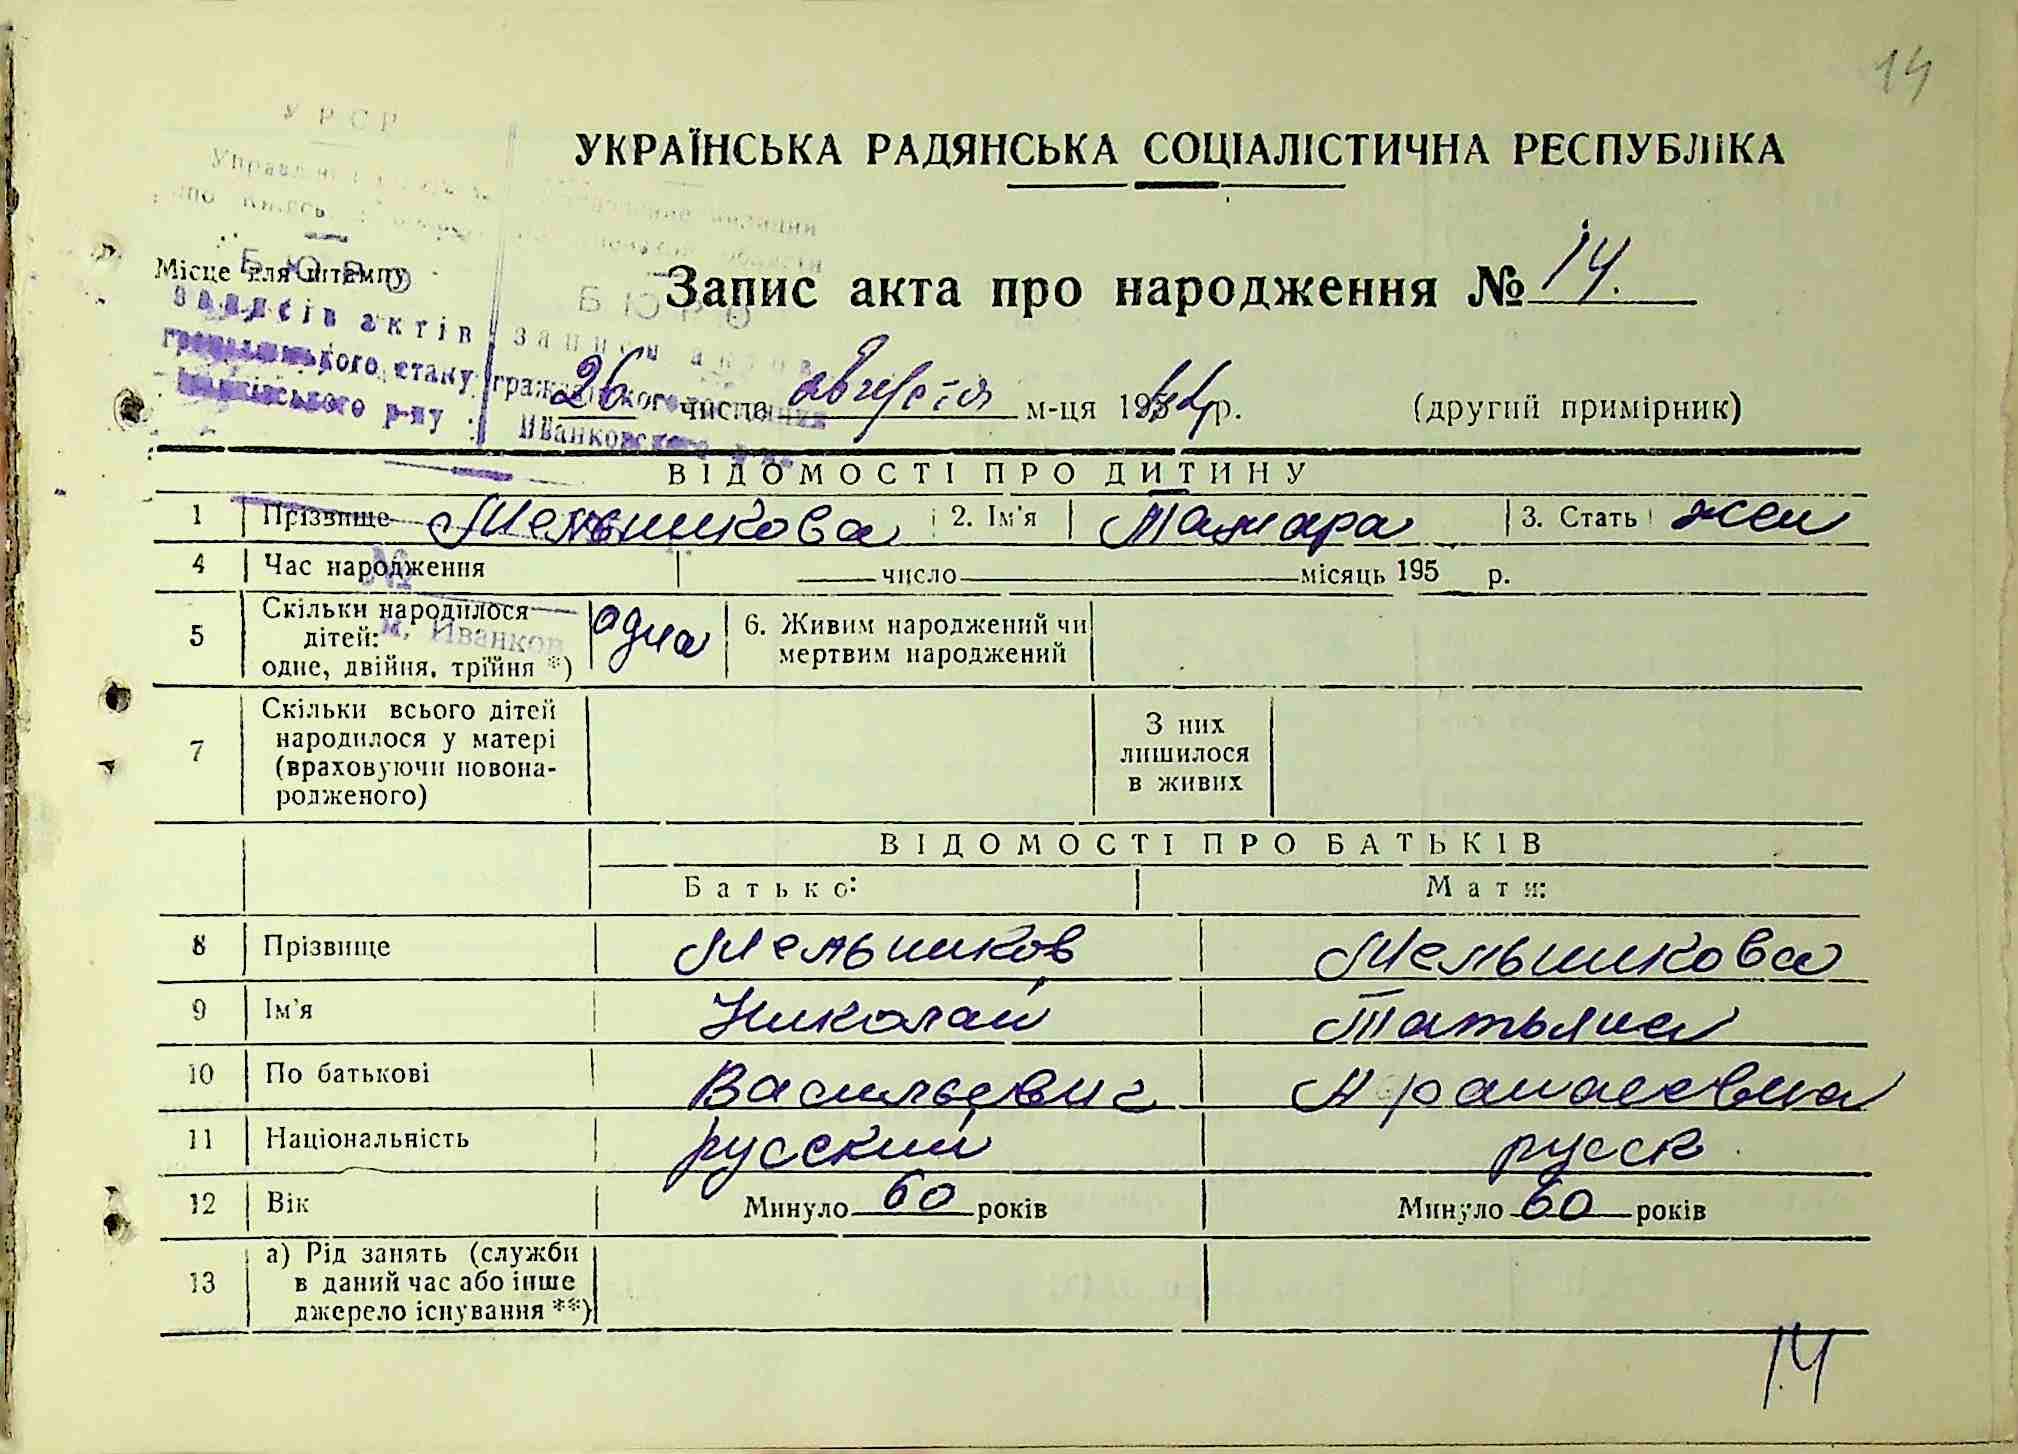 14
УРСР
УКРАЇНСЬКА РАДЯНСЬКА СОЦІАЛІСТИЧНА РЕСПУБЛІКА
Місце для штампу
БЮРО
записів актів
громадянського стану
Іванківського р-ну
БЮРО
записи актов
гражданского состояния
Иванковского
м. Иванков
Запис акта про народження № 14.
26 числа августа м-ця 195 р. (другий примірник)
ВІДОМОСТІ ПРО ДИТИНУ
1 Прізвище Мельникова 2. Ім'я Тамара 3. Стать жен
4 Час народження число місяць 195 р.
5 Скільки народилося дітей: одне, двійня, трійня *) одна 6. Живим народжений чи мертвим народжений
7 Скільки всього дітей народилося у матері (враховуючи новонародженого) З них лишилося в живих
ВІДОМОСТІ ПРО БАТЬКІВ
Батько: Мати:
8 Прізвище Мельников Мельникова
9 Ім'я Николай Татьяна
10 По батькові Васильевич
11 Національність русский русск
12 Вік Минуло 60 років Минуло 60 років
13 а) Рід занять (служби в даний час або інше джерело існування **)
14